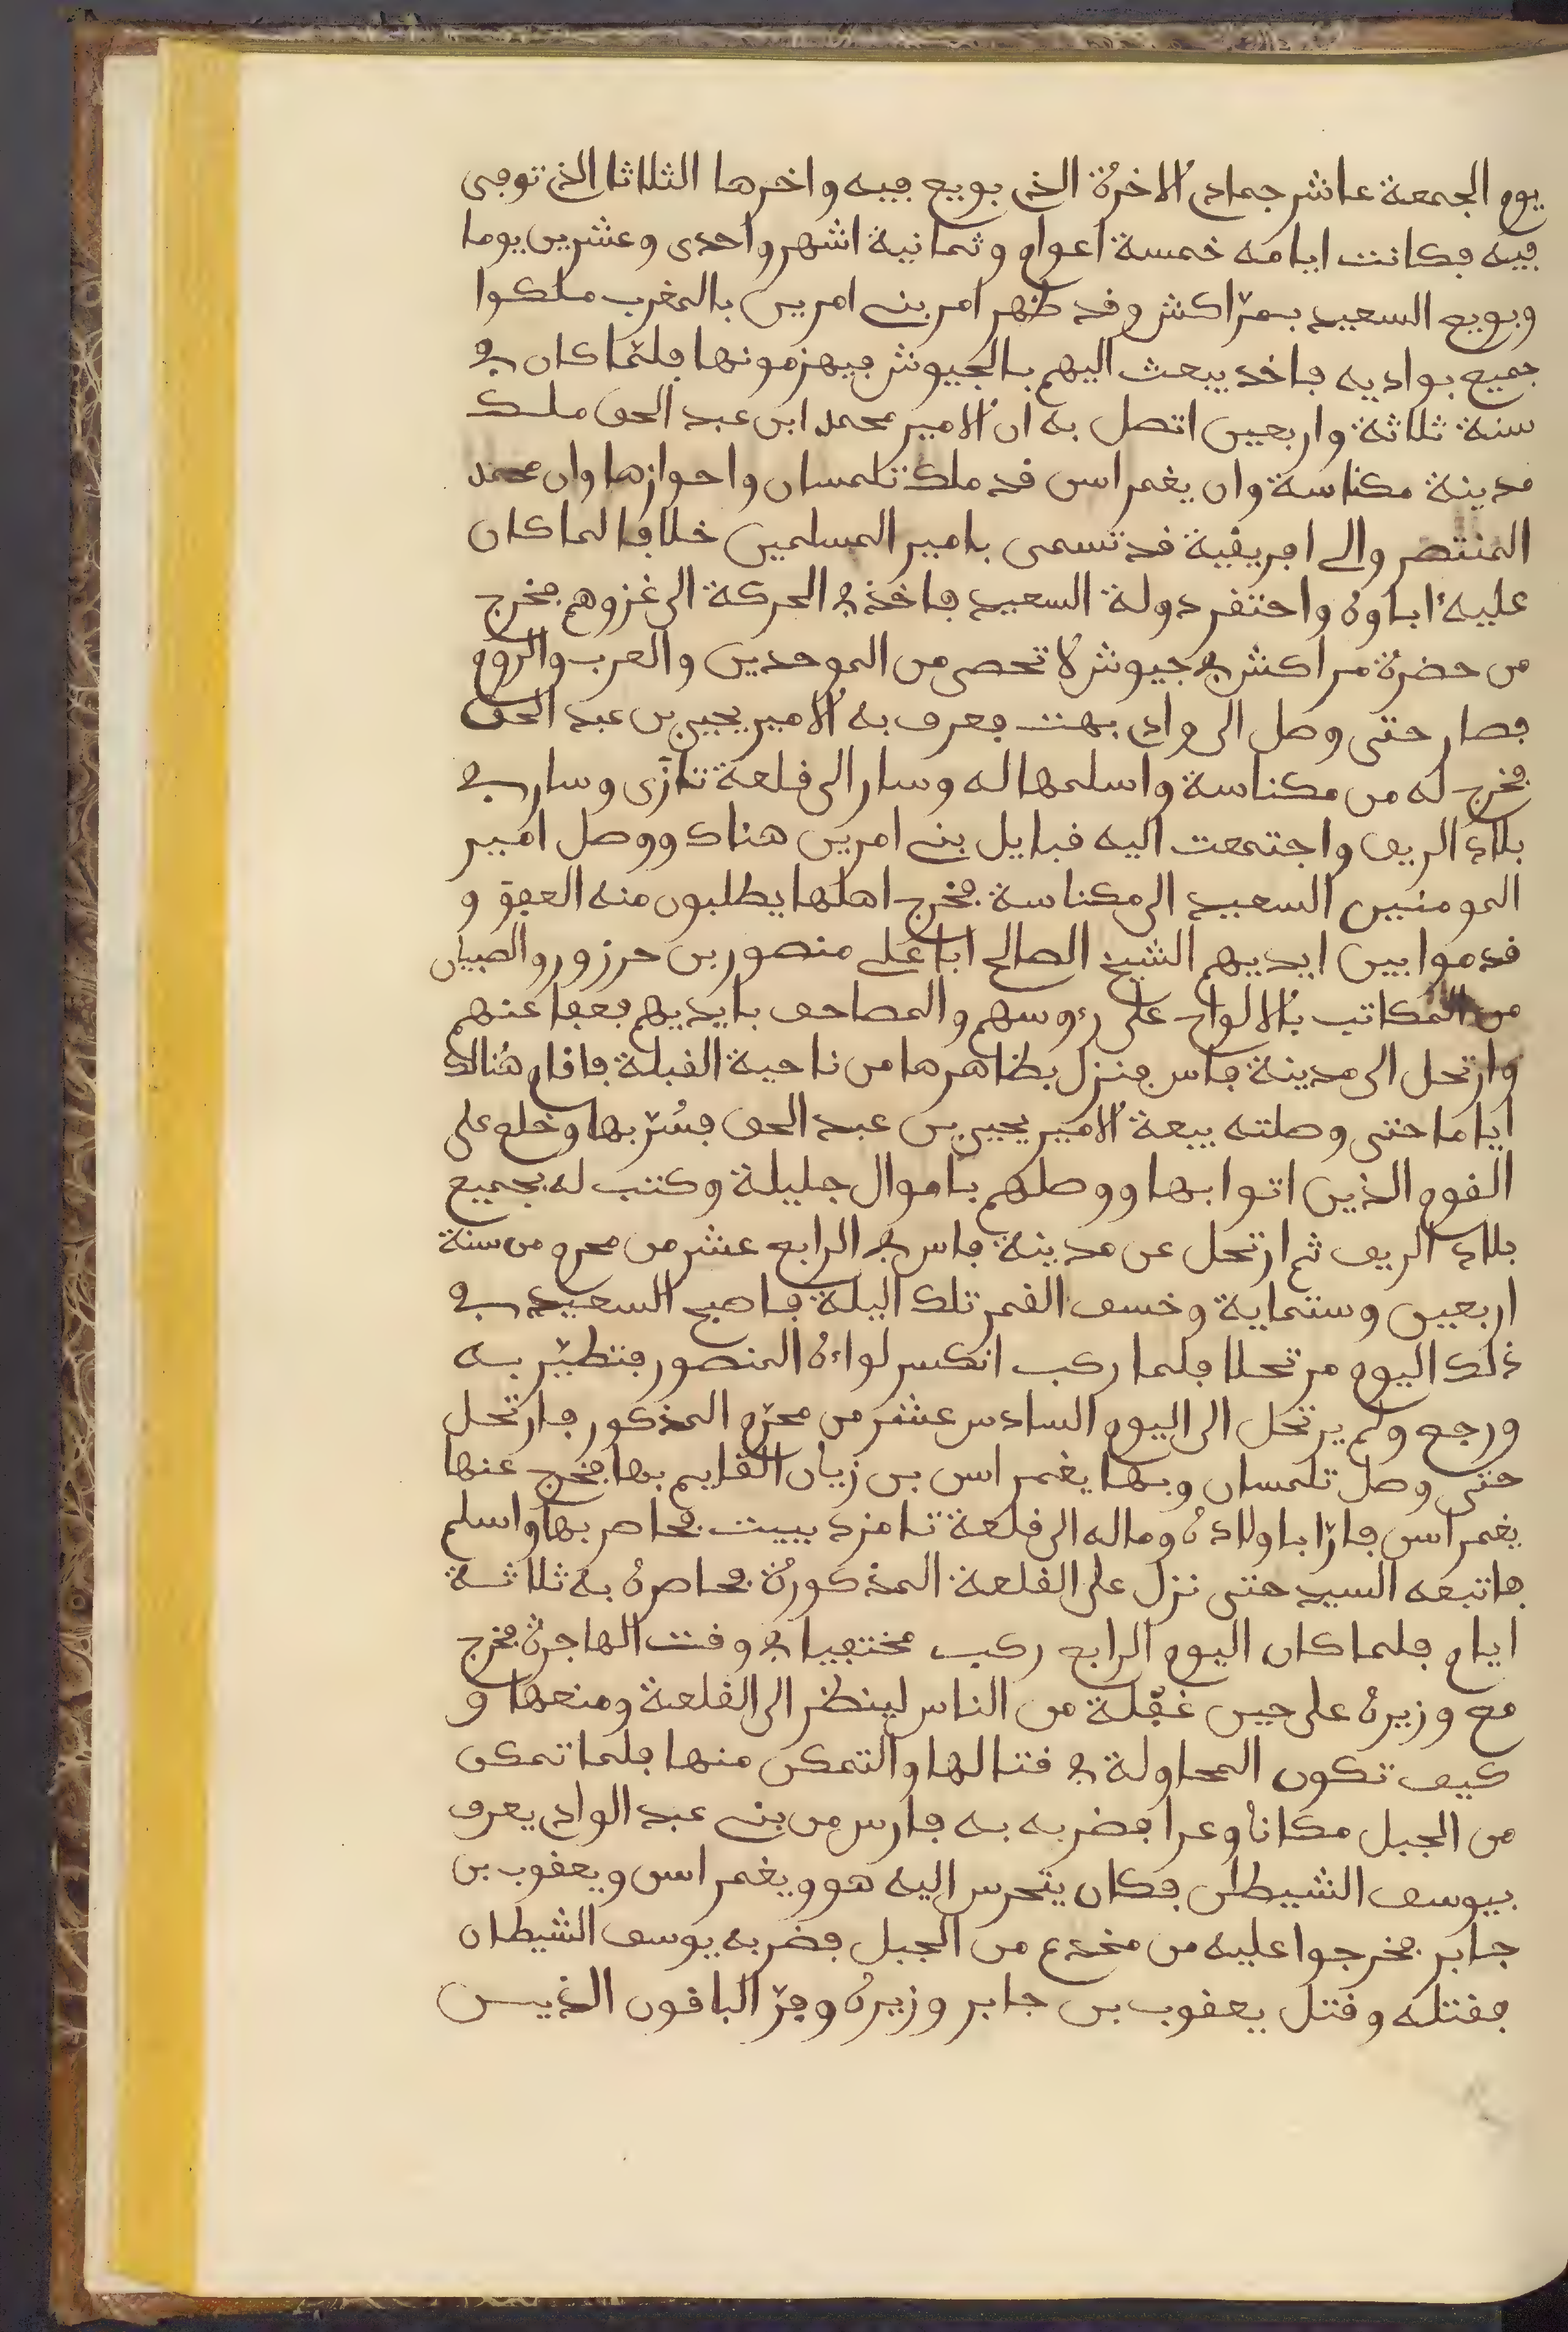 يوم الجمعة عاشر جمادى الاخرة الذي بويع فيه واخرها الثلاثا الذي توفى
فيه فكانت ايامه خمسة اعوام وثمانية اشهر واحدى وعشرين يوما
وبويع السعيد بمرّاكش وقد ظهر امر بني امرين بالمغرب ملكوا
جميع بواديه فاخذ يبعث اليهم بالجيوش فيهزمونها فلمّا كان في
سنة ثلاثة واربعين اتصل به ان الامير محمد ابن عبد الحق ملك
مدينة مكناسة وان يغمراسن قد ملك تلمسان واحوازها وان محمد
المنتصر والي افريقية قد تسمى بامير المسلمين خلافا لما كان
عليه اباوه واحتقر دولة السعيد فاخذ في الحركة الى غزوهم فخرج
من حضرة مراكش في جيوش لا تحصى من الموحدين والعرب والروم
فصار حتى وصل الى وادي بهت فعرف به الامير يحيى بن عبد الحق
فخرج له من مكناسة واسلمها له وسار الى قلعة تازى وسار في
بلاد الريف واجتمعت اليه قبايل بني امرين هناك ووصل امير
المومنين السعيد الى مكناسة فخرج اهلها يطلبون منه العفو و
قدموا بين ايديهم الشيخ الصالح ابا علي منصور بن حرزور والصبيان
من المكاتب بالالواح على رءوسهم والمصاحف بايديهم فعفا عنهم
وارتحل الى مدينة فاس فنزل بظاهرها من ناحية القبلة فاقام هنالك
اياما حتى وصلته بيعة الامير يحيى بن عبد الحق فسُرّ بها وخلع على
القوم الذين اتوا بها ووصلهم باموال جليلة وكتب له بجميع
بلاد الريف ثم ارتحل عن مدينة فاس في الرابع عشر من محرم من سنة
اربعين وستماية وخسف القمر تلك اليلة فاصبح السعيد في
ذلك اليوم مرتحلا فلما ركب انكسر لواءه المنصور فتطيّر به
ورجع ولم يرتحل الى اليوم السادس عشر من محرّم المذكور فارتحل
حتى وصل تلمسان وبها يغمراسن بن زيان القايم بها فخرج عنها
يغمراسن فارّا باولاده وماله الى قلعة تامزدييت فحاصر بها واسلم
فاتبعه السيد حتى نزل على القلعة المذكورة فحاصره به ثلاثة
ايام فلما كان اليوم الرابع ركب مختفيا في وقت الهاجرة فخرج
مع وزيره على حين غفلة من الناس لينظر الى القلعة ومنعها و
كيف تكون المحاولة في قتالها والتمكن منها فلما تمكن
من الجبل مكانا وعرا فضربه به فارس من بني عبد الوادي يعرف
بيوسف الشيطان فكان يتحرس اليه هو ويغمراسن ويعقوب بن
جابر فخرجوا عليه من مخدع من الجبل فضربه يوسف الشيطان
فقتله وقتل يعقوب بن جابر وزيره وفرّ الباقون الذين